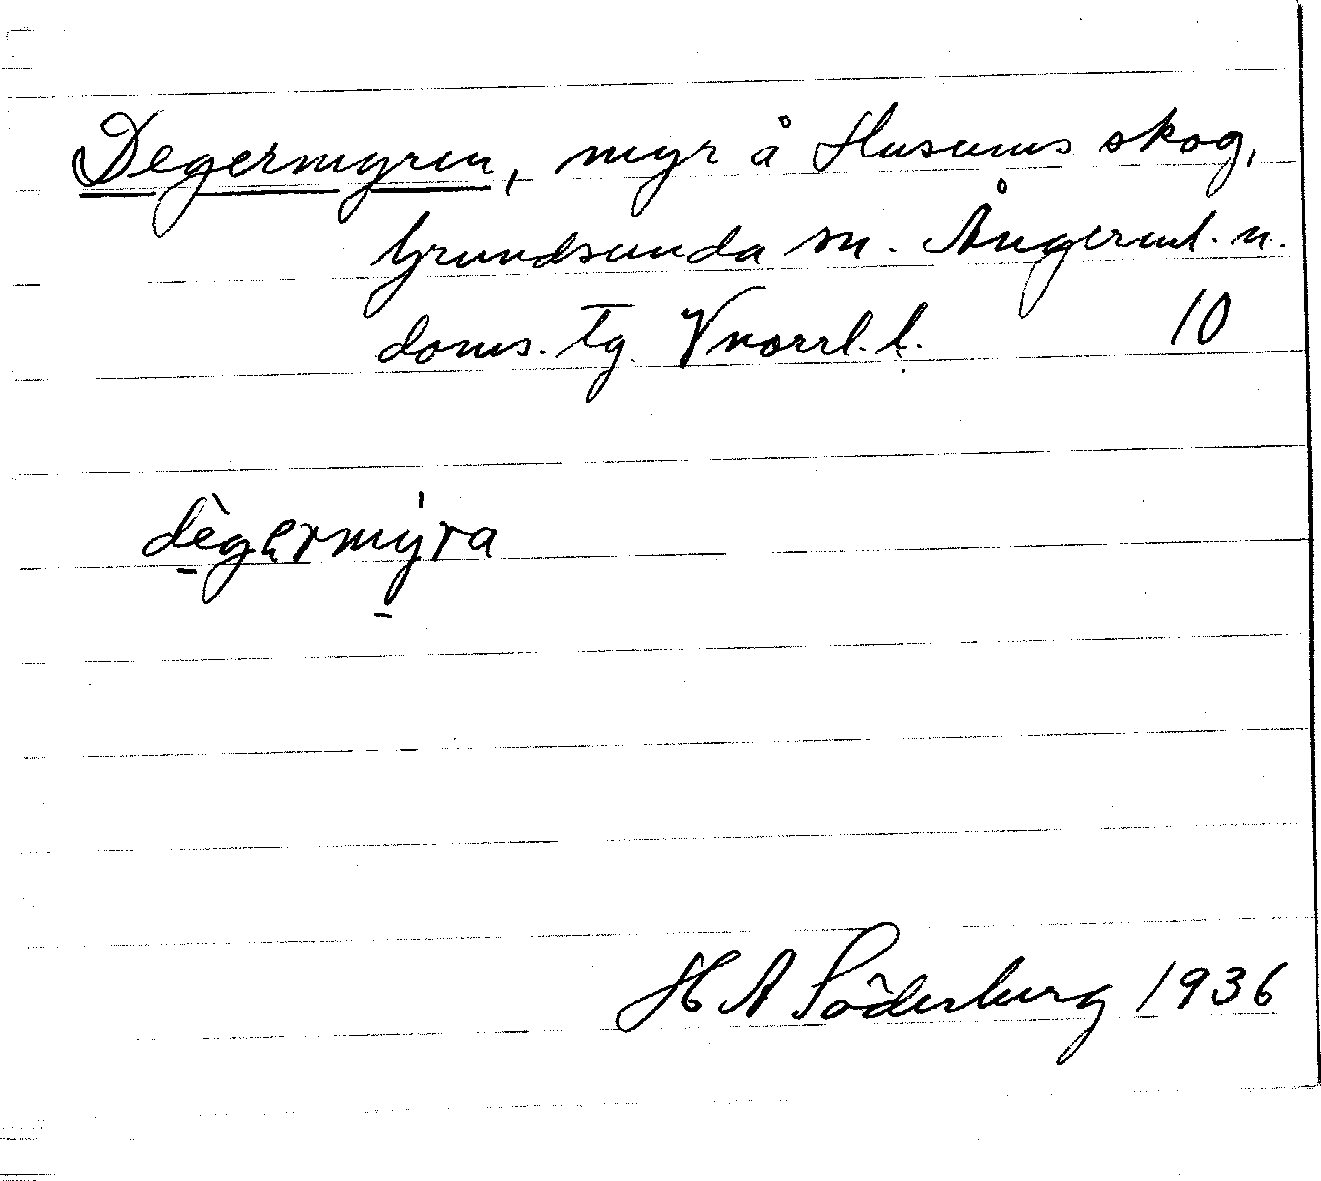 Degermyren, myr å Husums skog,
Grundsunda sn. Ångerml. n.
doms. tg. Vnorrl. l. 10
dègermýra
H A Söderberg 1936